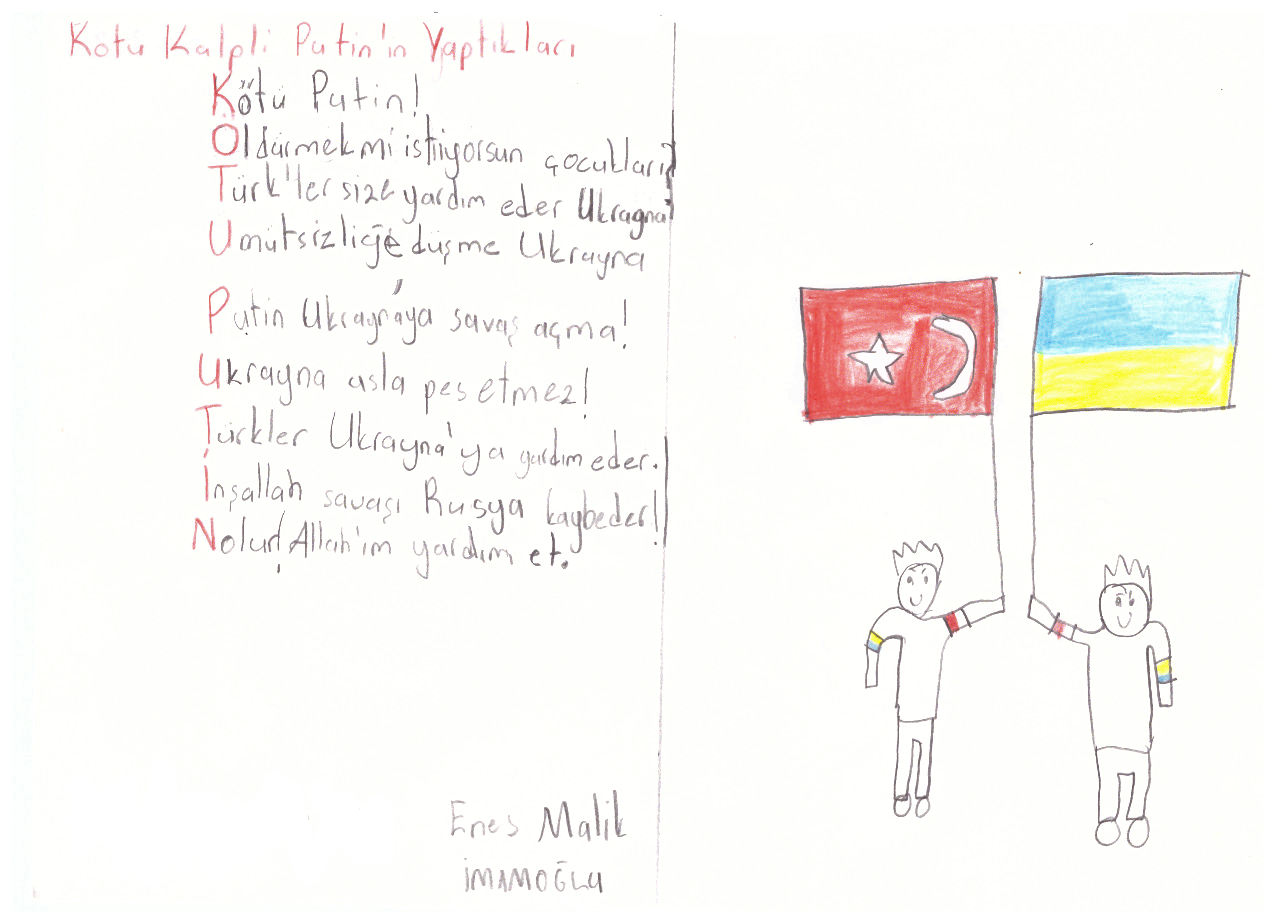 Kötü Kalpli Putin'in Yaptıkları
Kötü Putin!
Öldürmek mi istiiyorsun çocukları?
Türk'ler size yardım eder Ukrayna!
Umutsizliğe düşme Ukrayna
Putin Ukrayna'ya savaş açma!
Ukrayna asla pes etmez!
Türkler Ukrayna'ya yardım eder.
İnşallah savaşı Rusya kaybeder!!
Nolur! Allah'ım yardım et.
Enes Malik
İMAMOĞLU